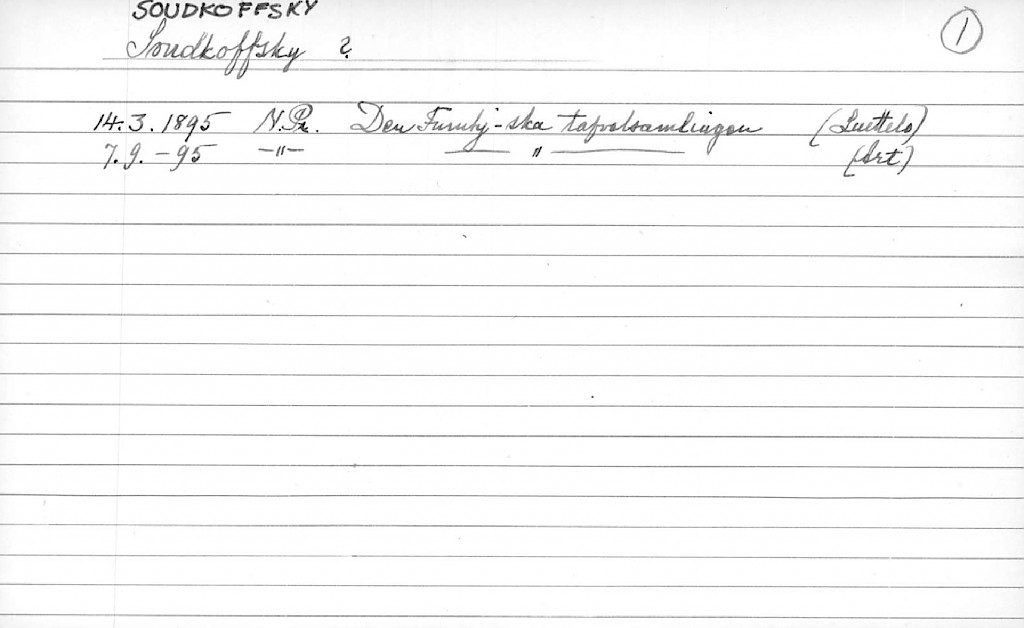 SOUDKOFFSKY
①
Soudkoffsky ?
14.3.1895 N.Pr. Den Furuhj-ska tafvelsamlingen (Luettelo)
7.9.-95 -"- — " — (Art.)